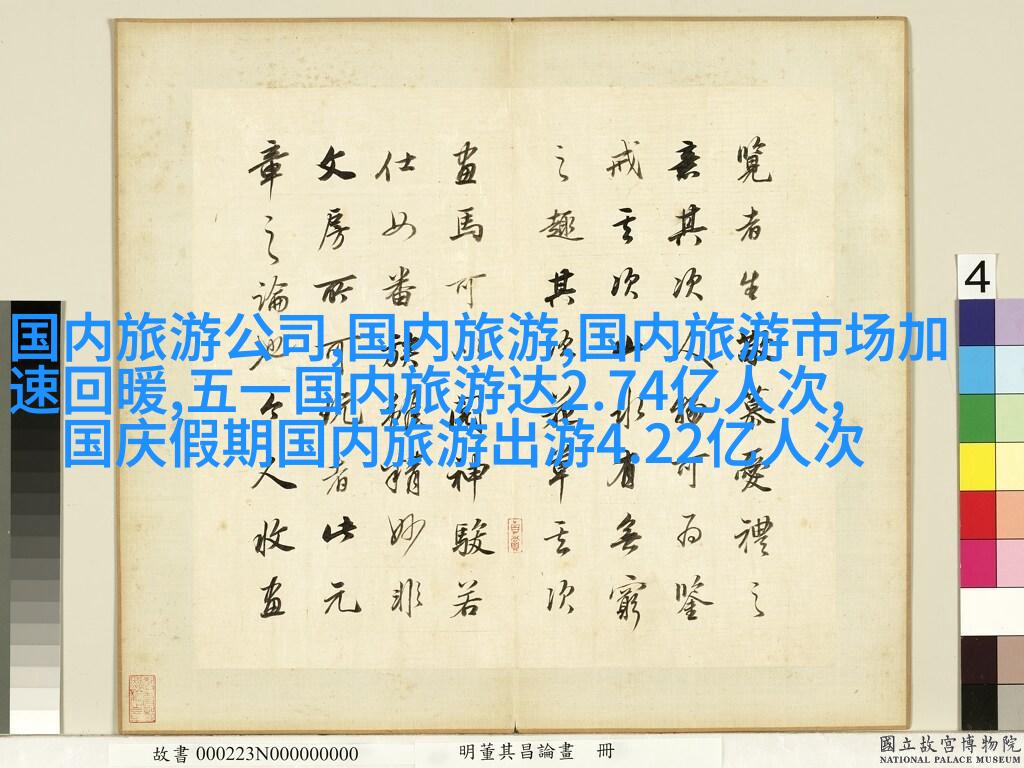 国内旅游公司,国内旅游,国内旅游市场加
速回暖,五一国内旅游达2.74亿人次,
国庆假期国内旅游出游4.22亿人次
覽者生敬慕愛禮之
意其次人物可為鑒
戒其次山水有無窮
之趣其次花草其次
畫馬可以閱神駿若
仕女番族雖精妙非
文房所可玩者此元
章之論也今人收畫
4
故書 000223N000000000
明董其昌論畫 冊
國立故宮博物院
NATIONAL PALACE MUSEUM